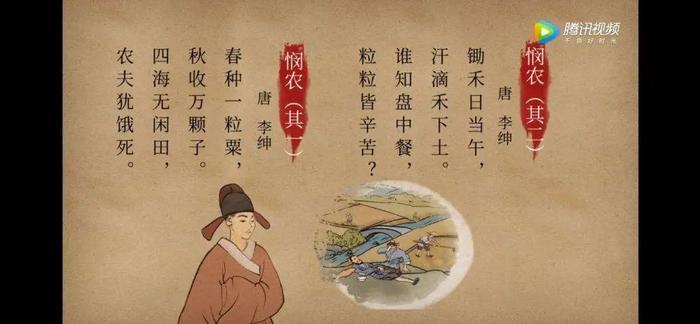 悯农（其二）
唐 李绅
锄禾日当午，
汗滴禾下土。
谁知盘中餐，
粒粒皆辛苦？
悯农（其一）
唐 李绅
春种一粒粟，
秋收万颗子。
四海无闲田，
农夫犹饿死。
腾讯视频
不负好时光